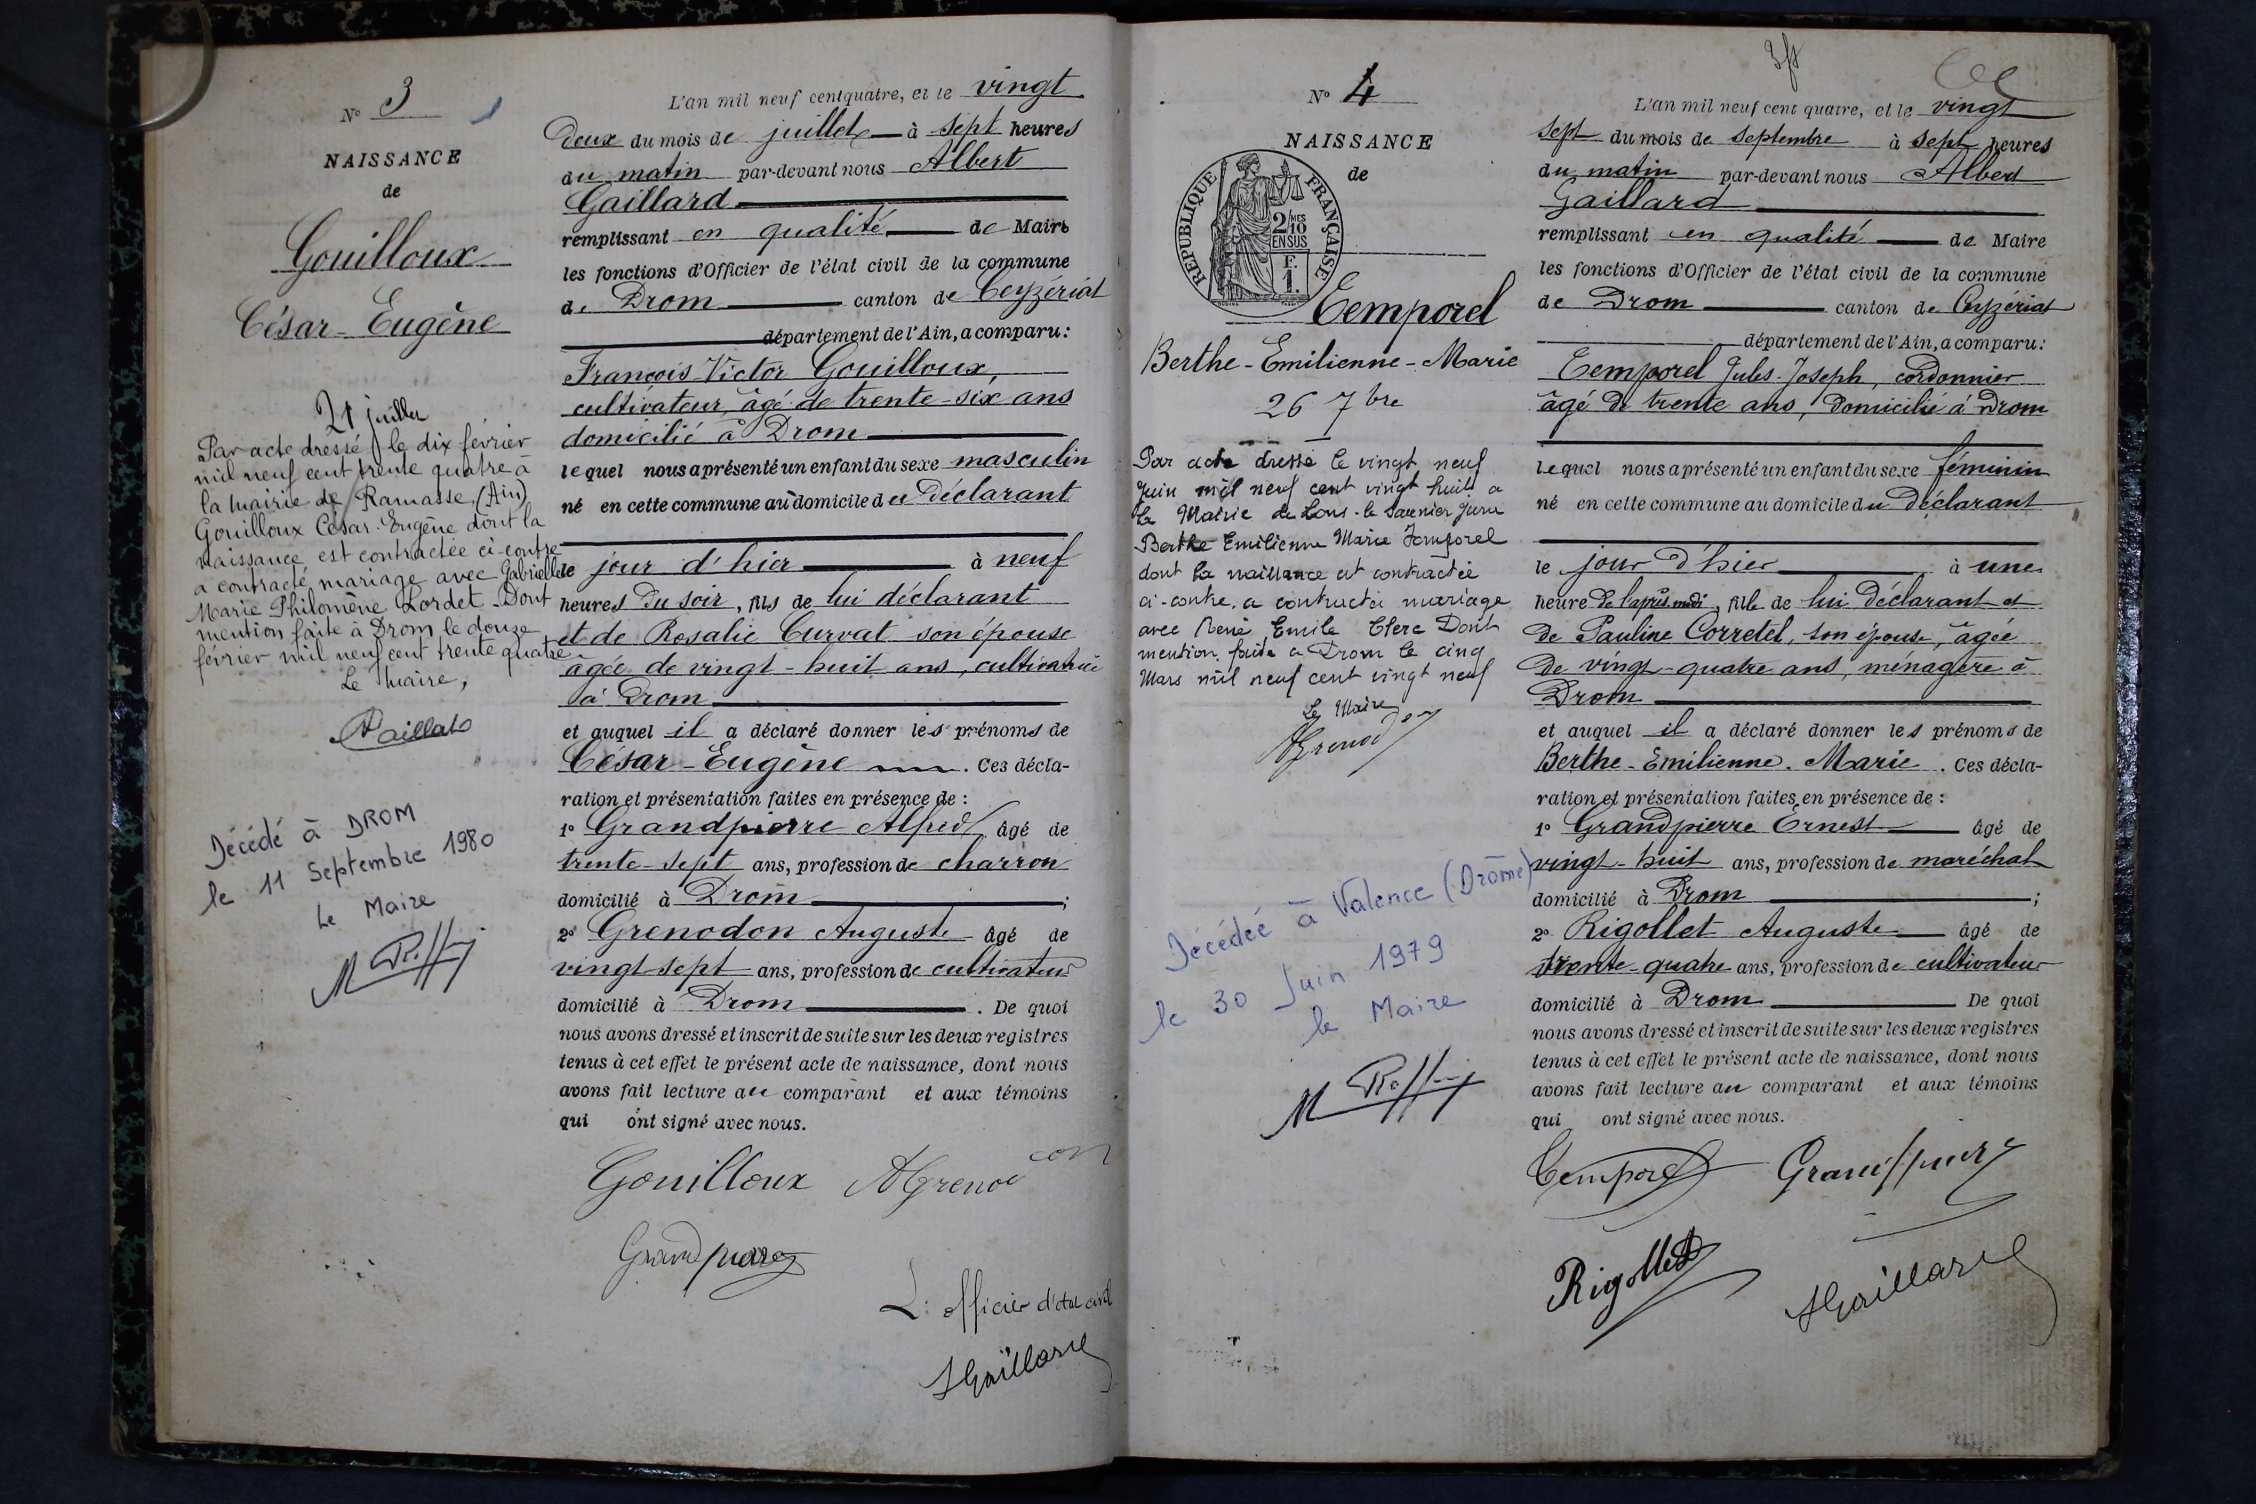 N° 3
NAISSANCE
de
Gouilloux
César-Eugène
21 juillet
Par acte dressé le dix février
mil neuf cent trente quatre à
la mairie de Ramasse (Ain)
Gouilloux César-Eugène dont la
naissance est contractée ci-contre
a contracté mariage avec Gabrielle
Marie Philomène Lordet. Dont
mention faite à Drom le douze
février mil neuf cent trente quatre
Le Maire,
Décédé à DROM
le 11 Septembre 1980
Le Maire
L'an mil neuf cent quatre, et le vingt
deux du mois de juillet à sept heures
du matin par-devant nous Albert
Gaillard
remplissant en qualité de Maire
les fonctions d'Officier de l'état civil de la commune
de Drom canton de Ceyzériat
département de l'Ain, a comparu:
François-Victor Gouilloux,
cultivateur, âgé de trente-six ans
domicilié à Drom
lequel nous a présenté un enfant du sexe masculin
né en cette commune au domicile du déclarant
le jour d'hier à neuf
heures du soir, fils de lui déclarant
et de Rosalie Curvat son épouse
âgée de vingt-huit ans, cultivatrice
à Drom
et auquel il a déclaré donner les prénoms de
César-Eugène. Ces décla-
ration et présentation faites en présence de :
1° Grandpierre Alfred âgé de
trente-sept ans, profession de charron
domicilié à Drom ;
2° Grenodon Auguste âgé de
vingt sept ans, profession de cultivateur
domicilié à Drom. De quoi
nous avons dressé et inscrit de suite sur les deux registres
tenus à cet effet le présent acte de naissance, dont nous
avons fait lecture au comparant et aux témoins
qui ont signé avec nous.
Gouilloux AGrenodon
Grandpierre
L'officier d'état civil
AGaillard
N° 4
NAISSANCE
de
RÉPUBLIQUE FRANÇAISE
2/10 MES
EN SUS
F.
1.
Temporel
Berthe-Emilienne-Marie
26 7bre
Par acte dressé le vingt neuf
Juin mil neuf cent vingt huit a
la Mairie de Lons-le Saunier Jura
Berthe Emilienne Marie Temporel
dont la naissance est contractée
ci-contre, a contracté mariage
avec René Emile Clerc Dont
mention faite a Drom le cinq
Mars mil neuf cent vingt neuf
Le Maire
AGrenodon
Décédée à Valence (Drôme)
le 30 Juin 1979
le Maire
L'an mil neuf cent quatre, et le vingt
sept du mois de septembre à sept heures
du matin par-devant nous Albert
Gaillard
remplissant en qualité de Maire
les fonctions d'Officier de l'état civil de la commune
de Drom canton de Ceyzériat
département de l'Ain, a comparu:
Temporel Jules-Joseph, cordonnier
âgé de trente ans, domicilié à Drom
lequel nous a présenté un enfant du sexe féminin
né en cette commune au domicile du déclarant
le jour d'hier à une
heure de l'après-midi, fille de lui déclarant et
de Pauline Corretel, son épouse, âgée
de vingt-quatre ans, ménagère à
Drom
et auquel il a déclaré donner les prénoms de
Berthe-Emilienne-Marie. Ces décla-
ration et présentation faites en présence de :
1° Grandpierre Ernest âgé de
vingt-huit ans, profession de maréchal
domicilié à Drom ;
2° Rigollet Auguste âgé de
trente-quatre ans, profession de cultivateur
domicilié à Drom De quoi
nous avons dressé et inscrit de suite sur les deux registres
tenus à cet effet le présent acte de naissance, dont nous
avons fait lecture au comparant et aux témoins
qui ont signé avec nous.
Temporel Grandpierre
Rigollet AGaillard